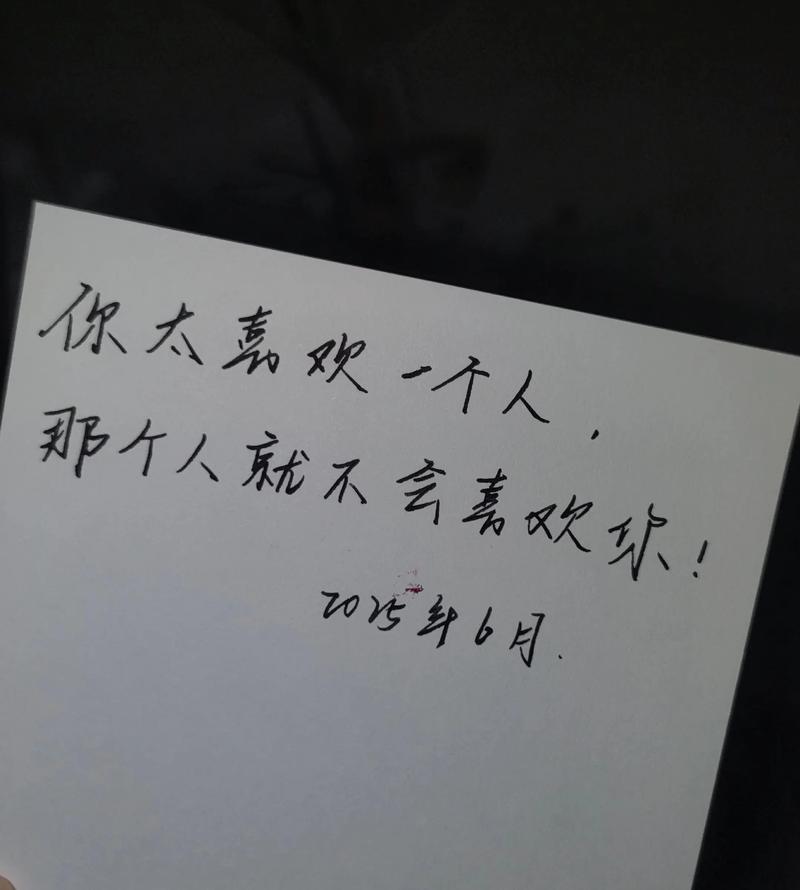 你太喜欢一个人,
那个人就不会喜欢你!
2025年6月.